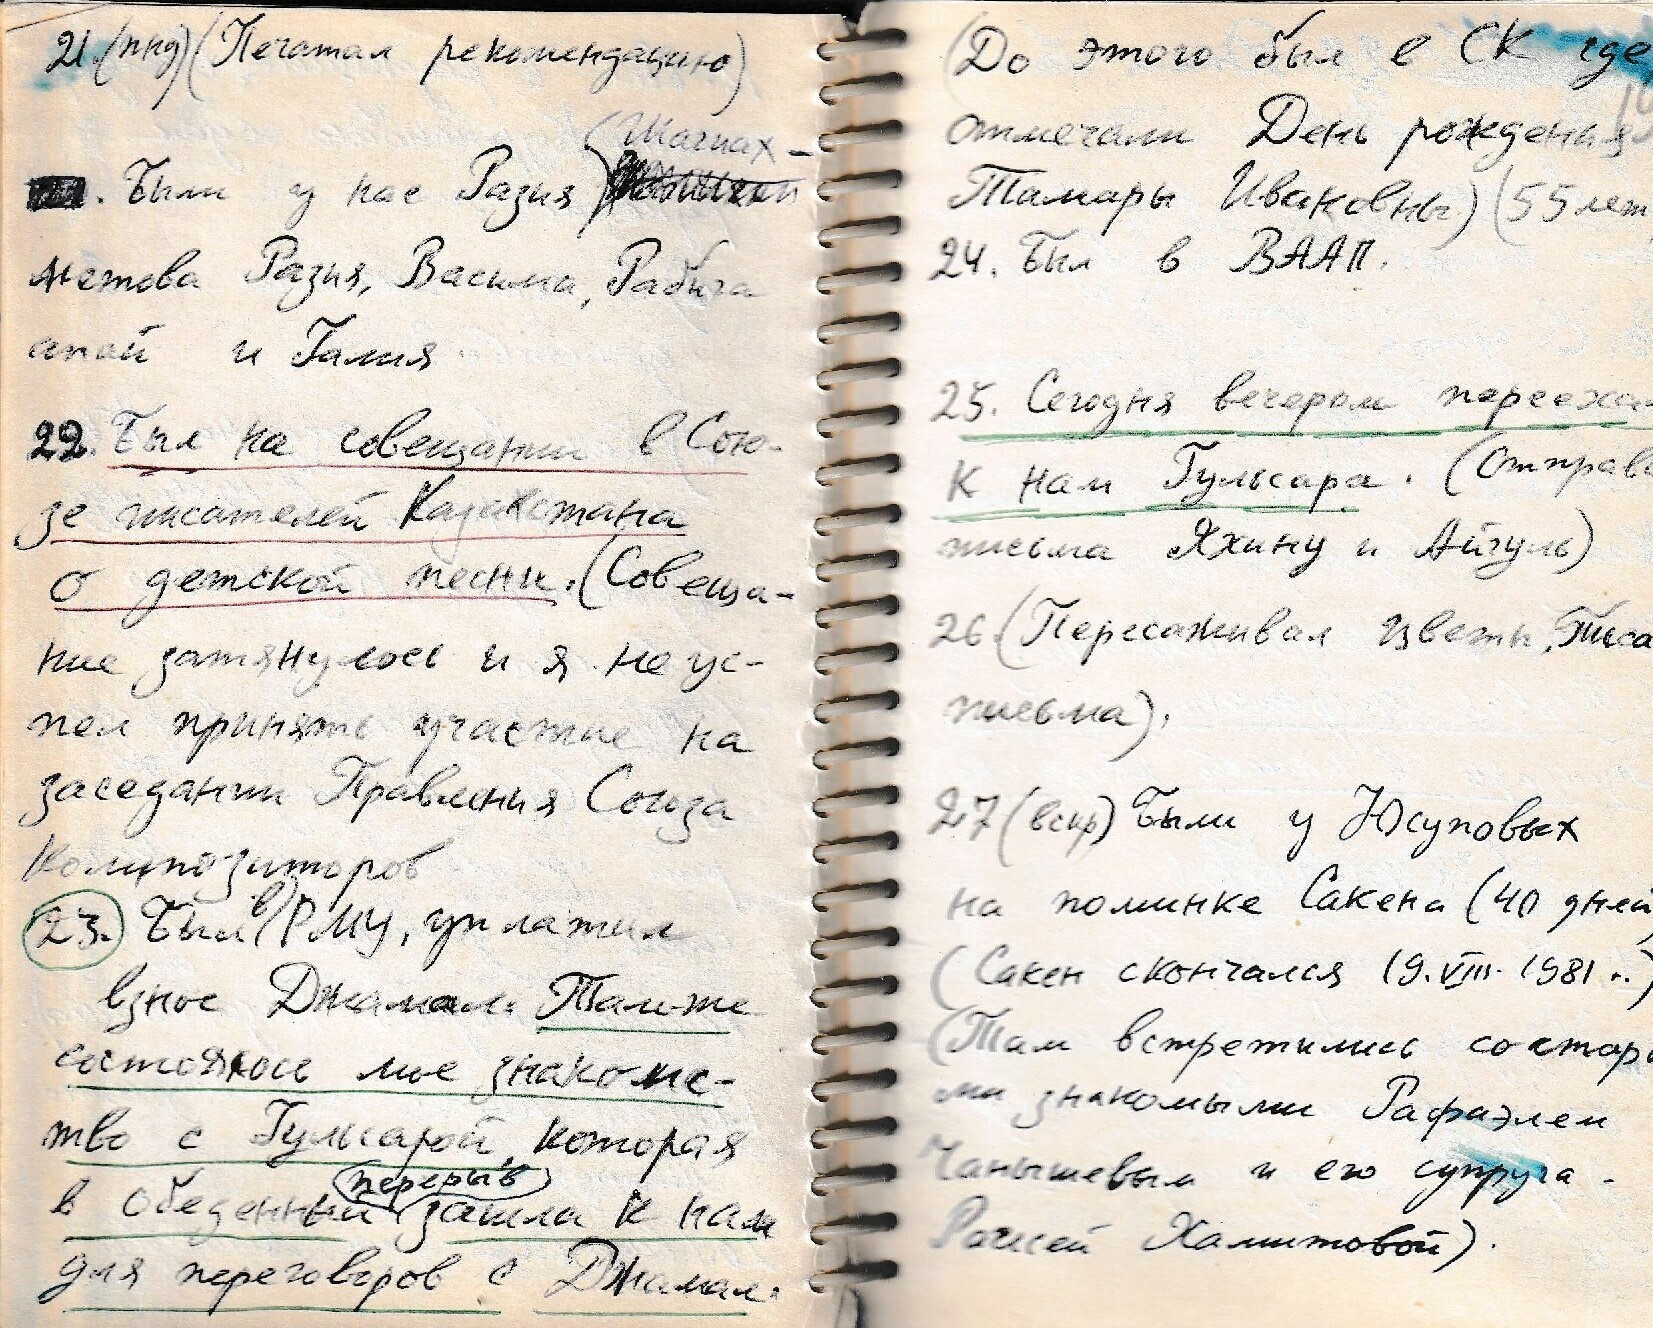 21. (пнд) (Печатал рекомендацию)
(Шагиах-
. Были у нас Разия
метова Разия, Васима, Рабига
апай и Галия
22. Был на совещании в Сою-
зе писателей Казахстана
о детской песни. (Совеща-
ние затянулось и я не ус-
пел принять участие на
заседании Правления Союза
композиторов
23. Был в РМУ, уплатил
взнос Джамал. Там-же
состоялось мое знакомс-
тво с Гульсарой, которая
перерыв
в обеденный зашла к нам
для переговоров с Джамал.
(До этого был в СК где
отмечали День рождения
Тамары Ивановны) (55 лет
24. Был в ВААП.
25. Сегодня вечером переехал
к нам Гульсара. (Отправ
письма Яхину и Айгуль)
26 (Пересаживал цветы, Писа
письма).
27 (вскр) Были у Юсуповых
на поминке Сакена (40 дней)
(Сакен скончался 19.VIII. 1981 г.)
(Там встретились со стары
ми знакомыми Рафаэлем
Чанышевым и его супруга -
Хамитовой).